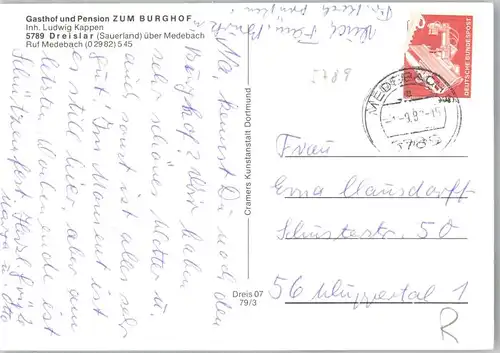 Gasthof und Pension ZUM BURGHOF
Inh. Ludwig Kappen
5789 Dreislar (Sauerland) über Medebach
Ruf Medebach (0 29 82) 5 45
Na, kennst Du noch den
Burghof? Wir haben
sehr schönes Wetter u.
auch sonst ist alles sehr
gut! Im Moment ist
es still hier, aber am
letzten Wochenende ist
Schützenfest. Herzl. Grüße
Marta u. Otto
Cramers Kunstanstalt Dortmund
Dreis 07
79/3
DEUTSCHE BUNDESPOST
MEDEBACH
5789
Frau
Erna Clausdorff
Schusterstr. 50
56 Wuppertal 1